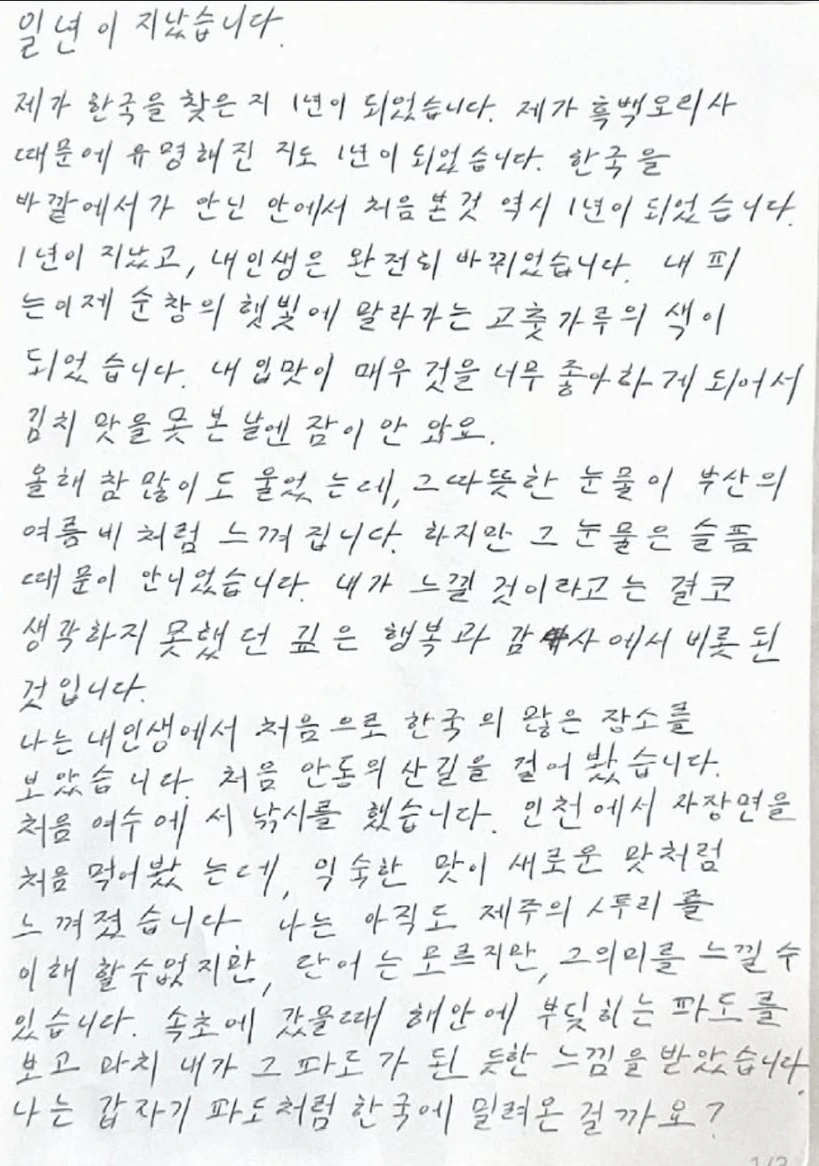 일년이 지났습니다.
제가 한국을 찾은 지 1년이 되었습니다. 제가 흑백요리사
때문에 유명해진 지도 1년이 되었습니다. 한국을
바깥에서가 안닌 안에서 처음 본것 역시 1년이 되었습니다.
1년이 지났고, 내인생은 완전히 바뀌었습니다. 내 피
는이제 순창의 햇빛에 말라가는 고춧가루의 색이
되었습니다. 내 입맛이 매우 것을 너무 좋아하게 되어서
김치 맛을 못 본 날엔 잠이 안 와요.
올해 참 많이도 울었는데, 그따뜻한 눈물이 부산의
여름비처럼 느껴집니다. 하지만 그 눈물은 슬픔
때문이 안니었습니다. 내가 느낄 것이라고는 결코
생각하지 못했던 깊은 행복과 감사에서 비롯된
것입니다.
나는 내인생에서 처음으로 한국의 많은 장소를
보았습니다. 처음 안동의 산길을 걸어 봤습니다.
처음 여수에서 낚시를 했습니다. 인천에서 자장면을
처음 먹어봤는데, 익숙한 맛이 새로운 맛처럼
느껴졌습니다 나는 아직도 제주의 사투리를
이해 할수없지만, 단어는 모르지만, 그의미를 느낄 수
있습니다. 속초에 갔을때 해안에 부딪히는 파도를
보고 마치 내가 그 파도가 된 듯한 느낌을 받았습니다.
나는 갑자기 파도처럼 한국에 밀려온 걸까요?